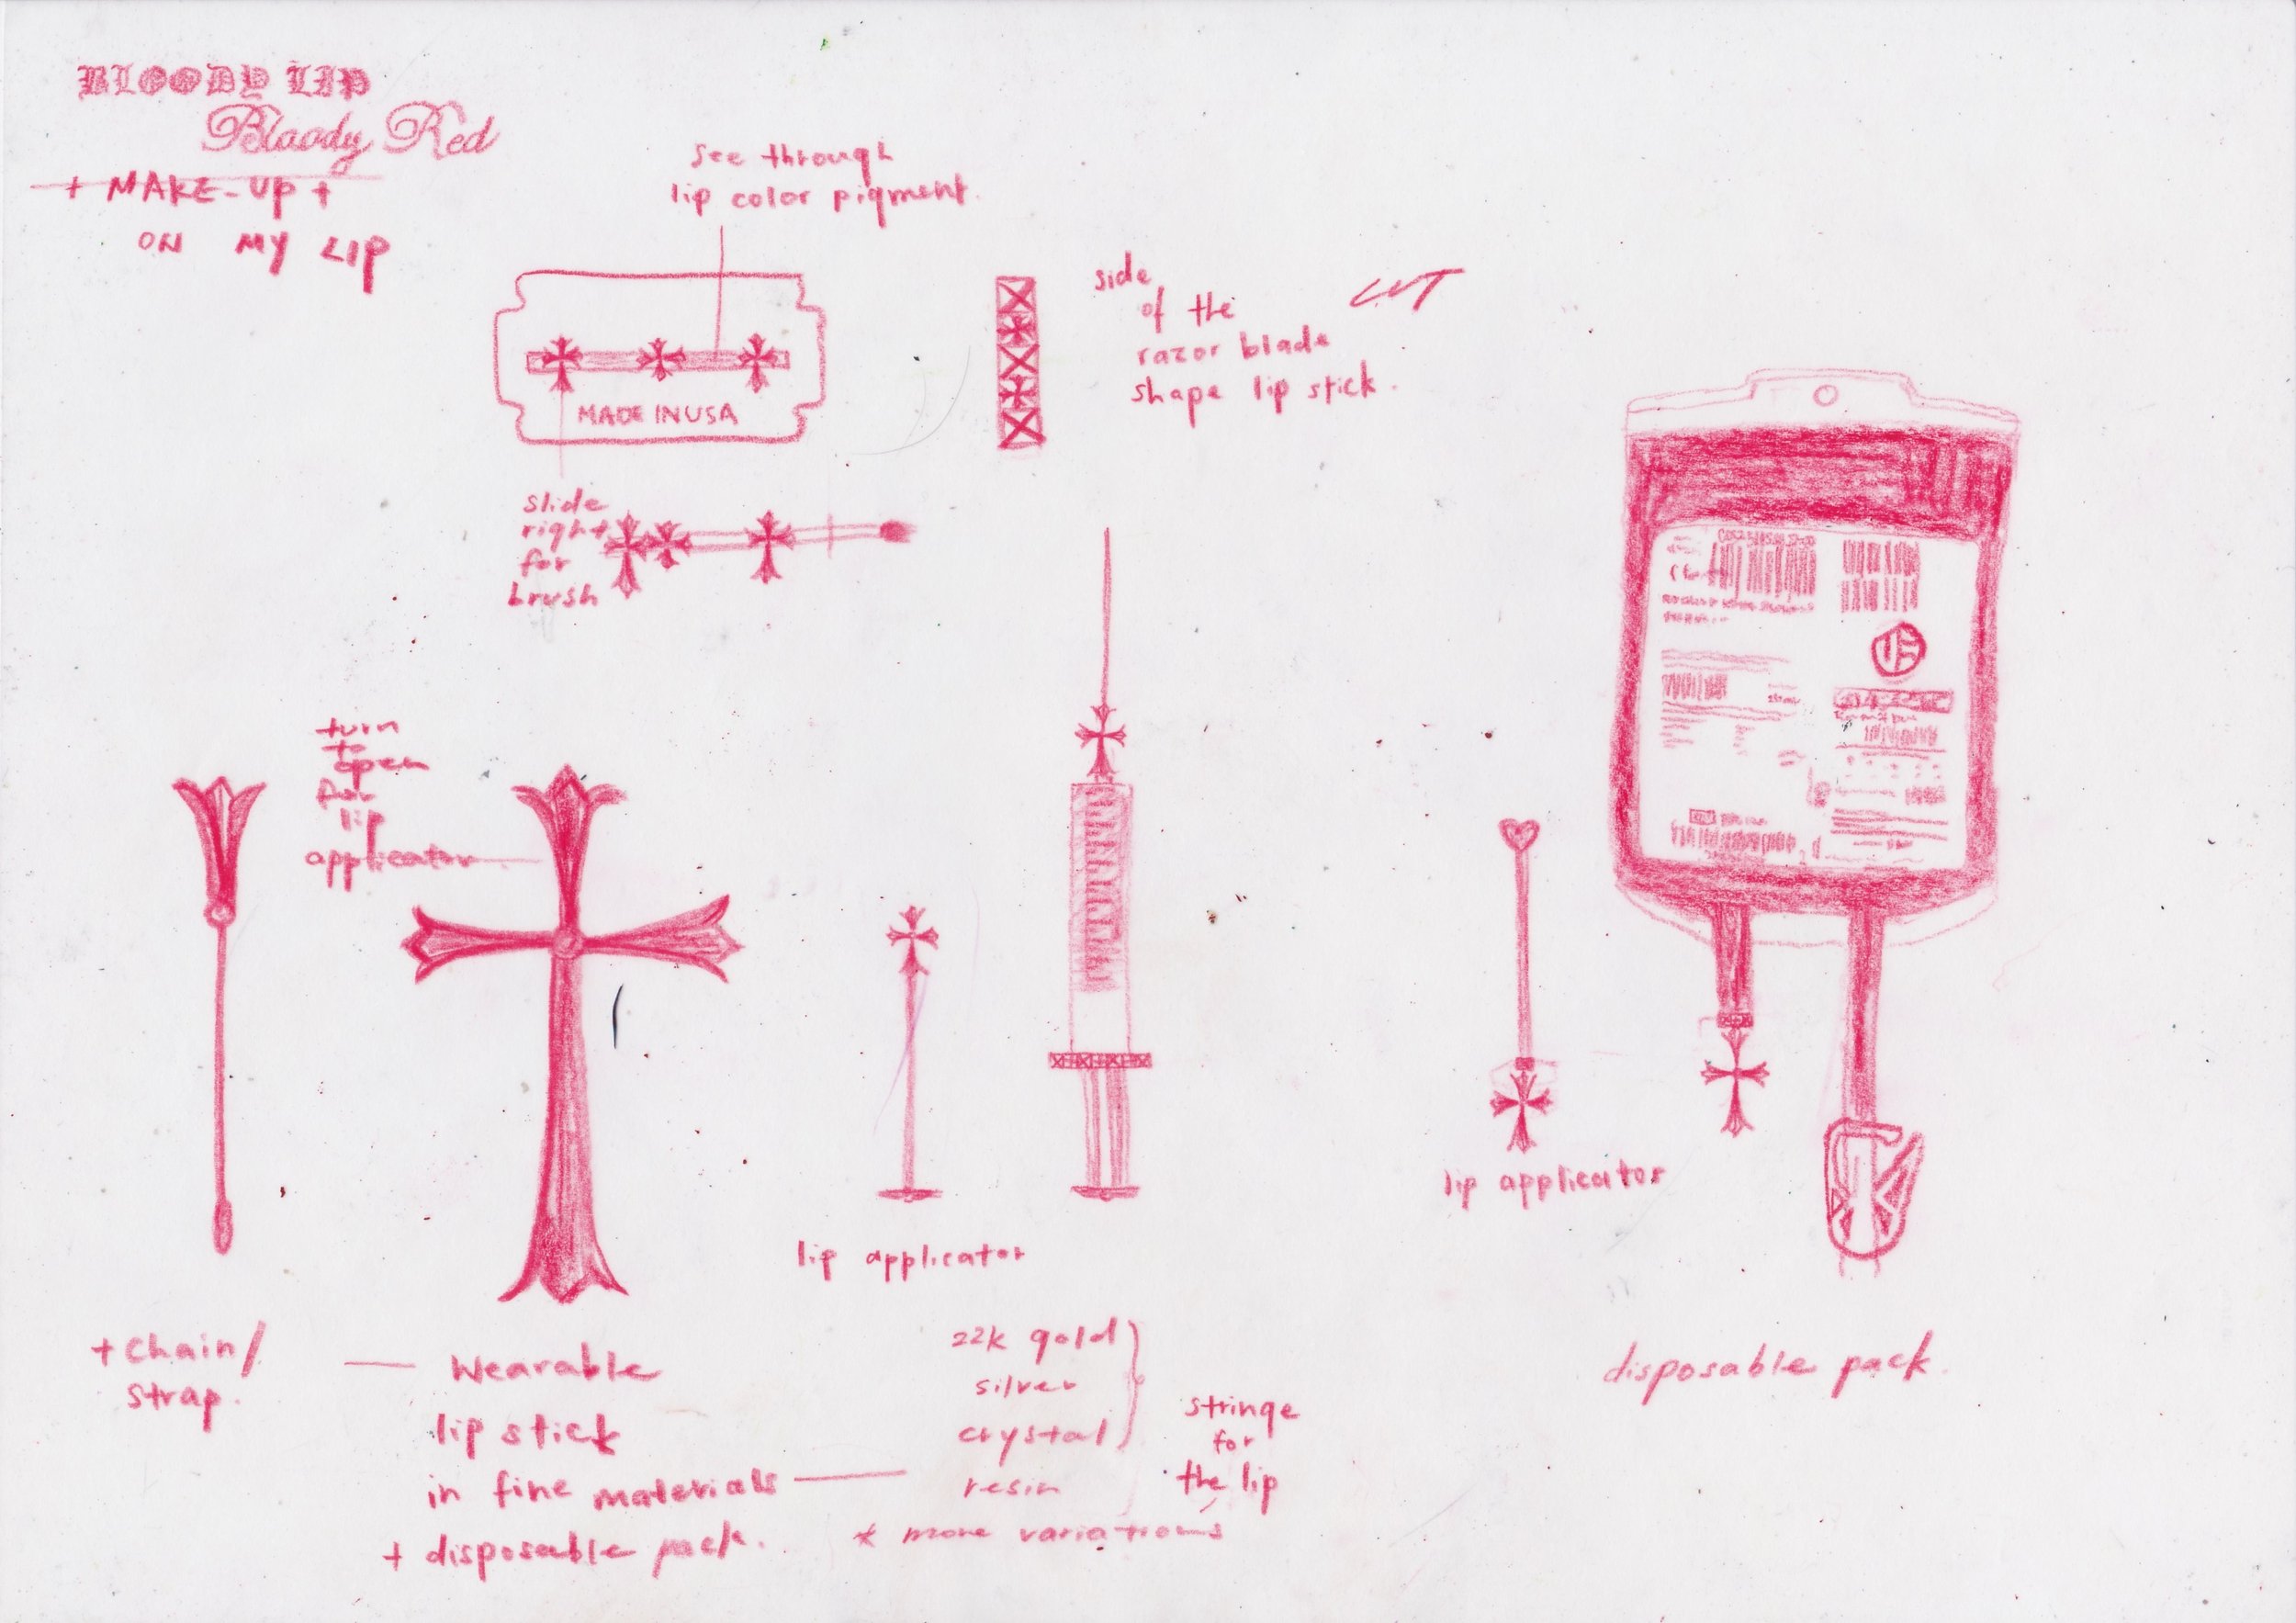 BLOODY LIP
Bloody Red
+ MAKE-UP +
ON MY LIP
see through
lip color pigment.
MADE IN USA
side
of the
razor blade
shape lip stick.
CUT
slide
right
for
brush
turn
to
open
for
lip
applicator
lip applicator
lip applicator
disposable pack.
+ chain/
strap.
wearable
lip stick
in fine materials
+ disposable pack.
22k gold
silver
crystal
resin
* more variations
stringe
for
the lip